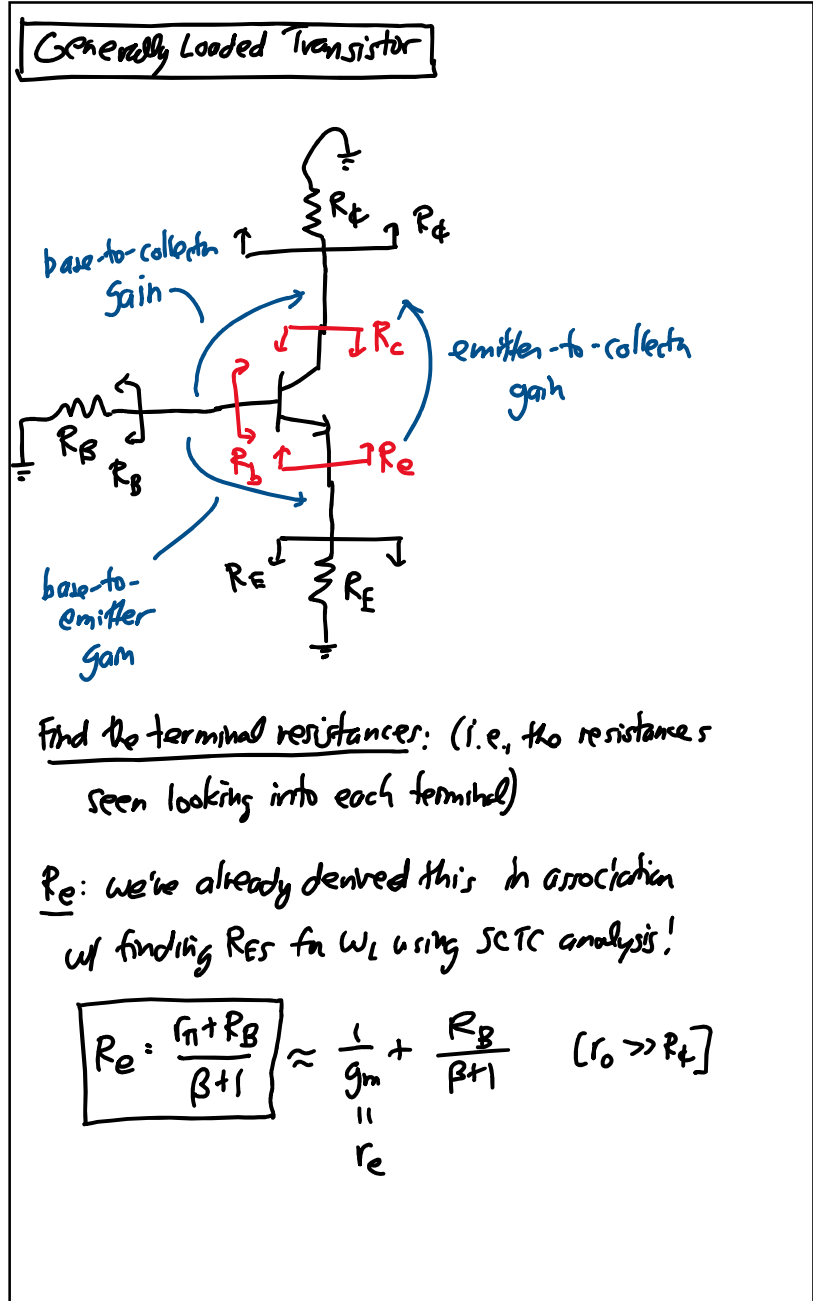 Generally Loaded Transistor
R₵
R₵
base-to-collector
gain
Rc
emitter-to-collector
gain
RB
RB
Rb
Re
RE
RE
base-to-
emitter
gain
Find the terminal resistances: (i.e., the resistances
seen looking into each terminal)
Re: we've already derived this in association
w/ finding RES for ωL using SCTC analysis!
Re = (rπ + RB)/(β+1) ≈ 1/gm + RB/(β+1) [ro >> R₵]
=
re